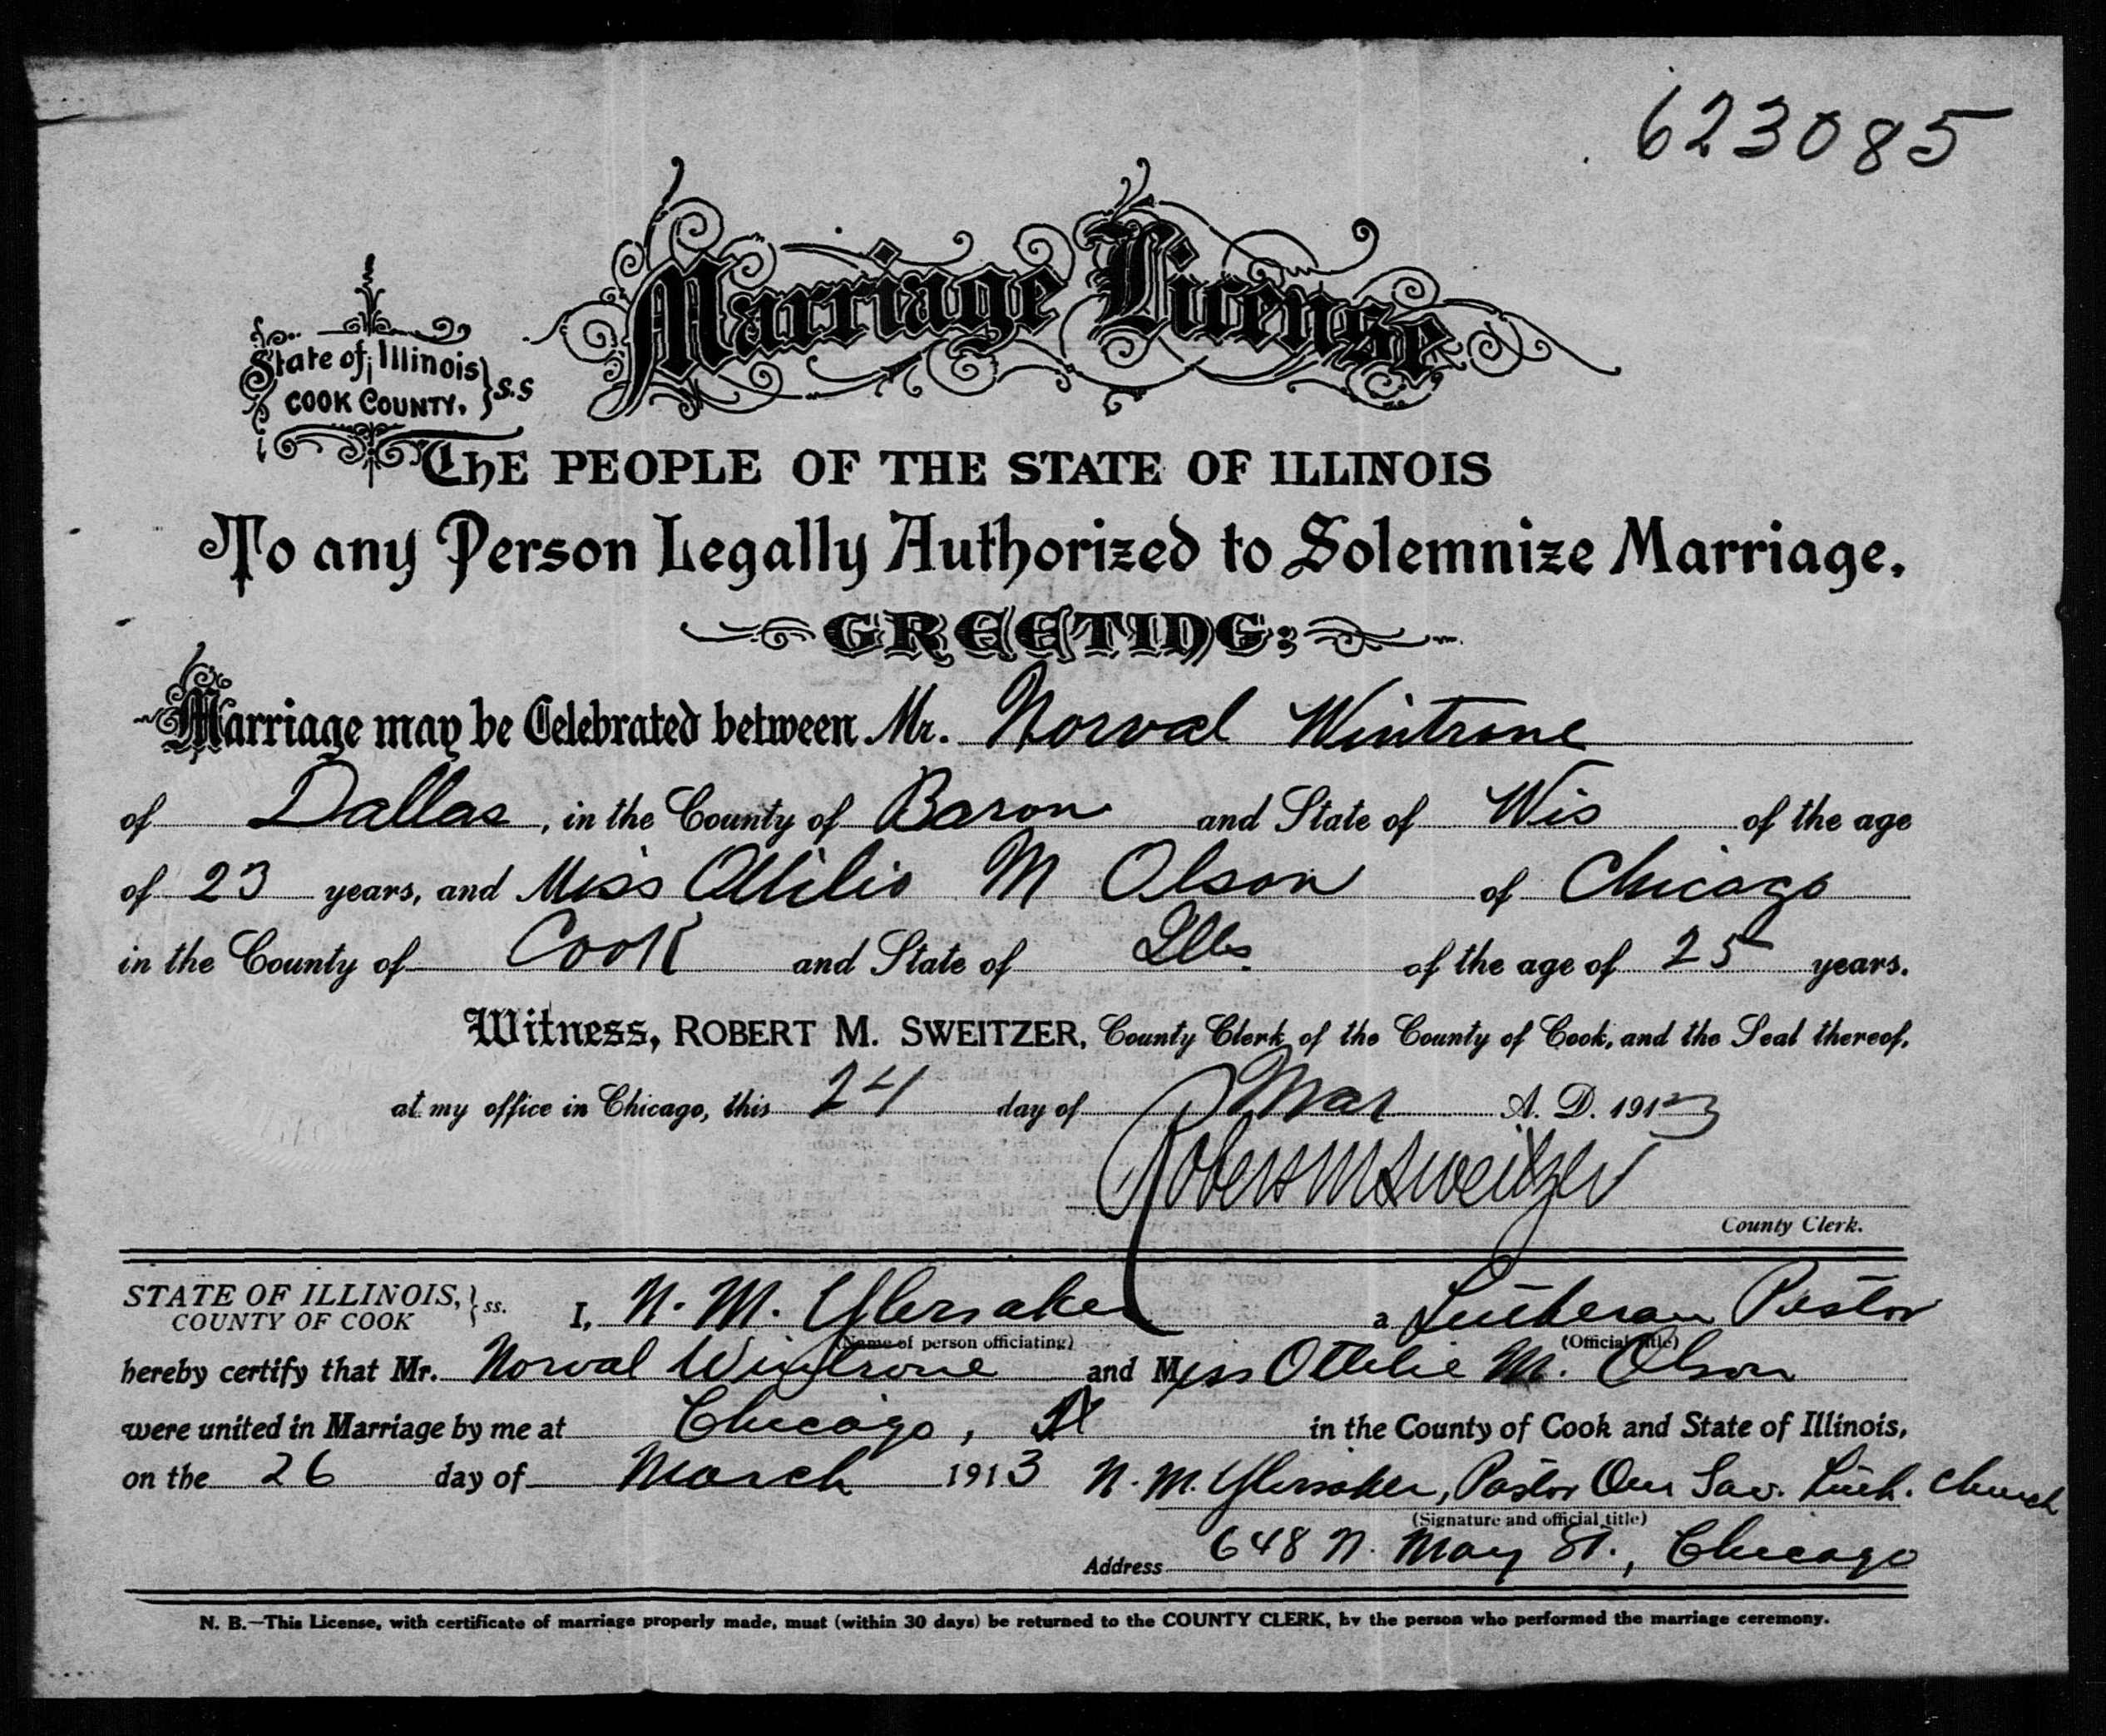 623085
Marriage License
State of Illinois
COOK COUNTY. } S.S
THE PEOPLE OF THE STATE OF ILLINOIS
To any Person Legally Authorized to Solemnize Marriage.
GREETING:
Marriage may be Celebrated between Mr. Norval Wintrone
of Dallas, in the County of Baron and State of Wis of the age
of 23 years, and Miss Ottilie M Olson of Chicago
in the County of Cook and State of Ills. of the age of 25 years.
Witness, ROBERT M. SWEITZER, County Clerk of the County of Cook, and the Seal thereof,
at my office in Chicago, this 24 day of Mar A. D. 1913
Robert M Sweitzer
County Clerk.
STATE OF ILLINOIS, } ss. I, N. M. Ylvisaker a Lutheran Pastor
COUNTY OF COOK (Name of person officiating) (Official title)
hereby certify that Mr. Norval Wintrone and Miss Ottilie M. Olson
were united in Marriage by me at Chicago, in the County of Cook and State of Illinois,
on the 26 day of March 1913 N. M. Ylvisaker, Pastor Our Sav. Luth. Church
(Signature and official title)
Address 648 N. May St., Chicago
N. B.—This License, with certificate of marriage properly made, must (within 30 days) be returned to the COUNTY CLERK, by the person who performed the marriage ceremony.